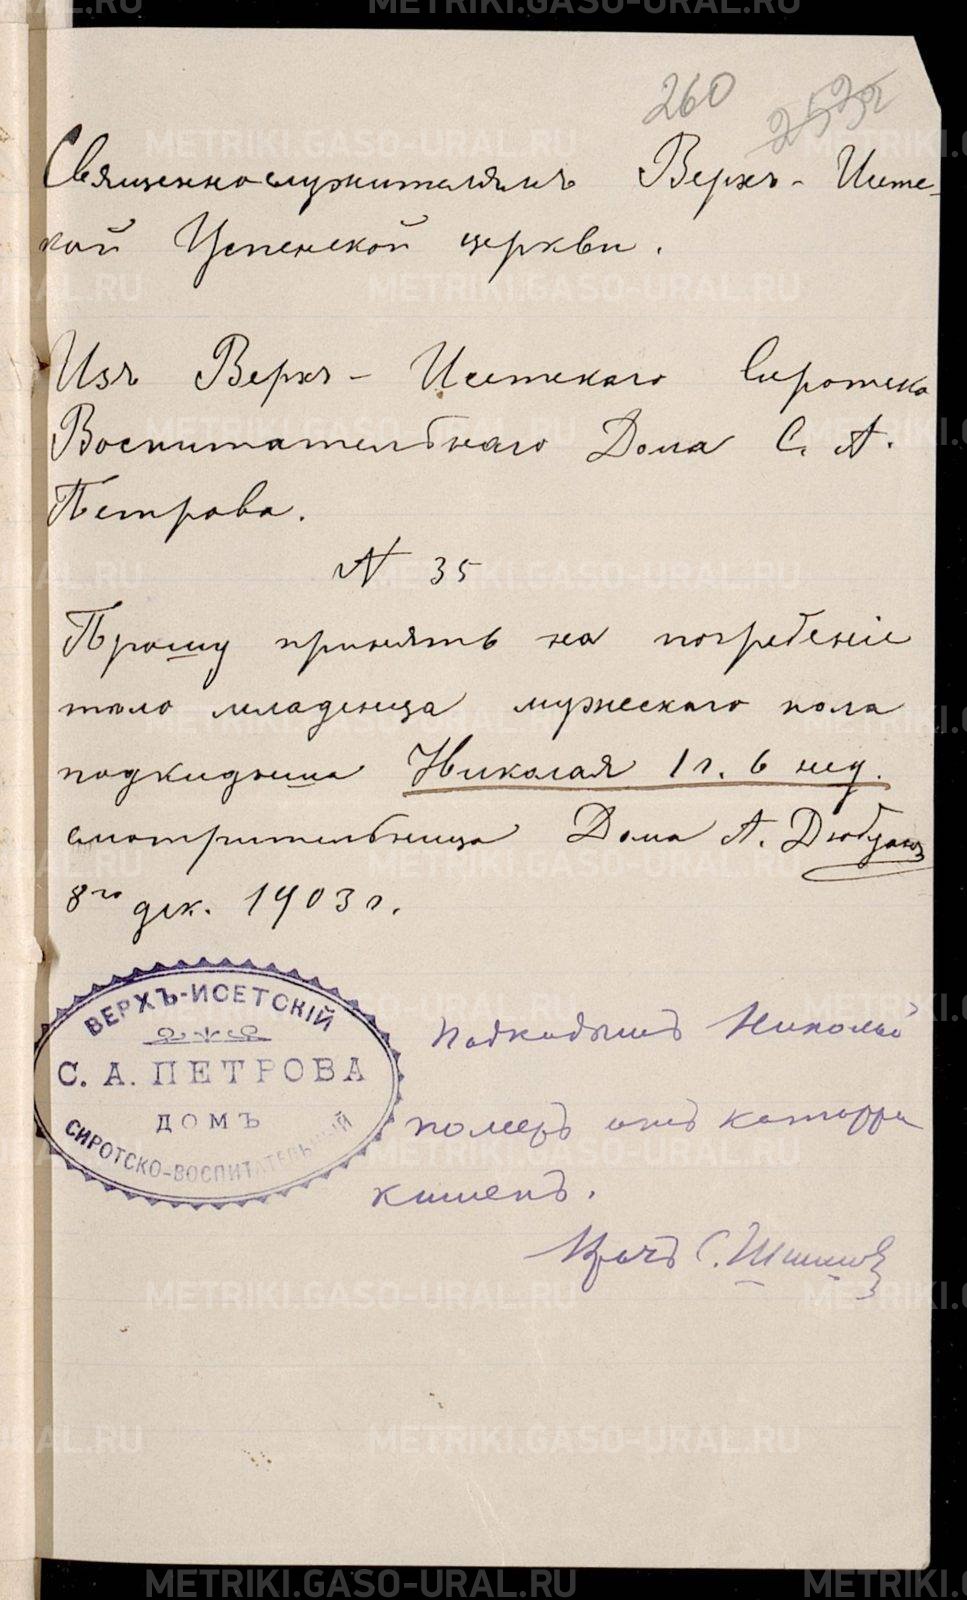 260 2532
Священнослужителямъ Верхъ-Исетс-
кой Успенской церкви.
Изъ Верхъ-Исетскаго Сиротско
Воспитательнаго Дома С. А.
Петрова.
№ 35
Прошу принять на погребеніе
тѣло младенца мужескаго пола
подкидыша Николая 1 г. 6 нед.
смотрительница Дома А.
8го дек. 1903 г.
ВЕРХЪ-ИСЕТСКІЙ
С. А. ПЕТРОВА
ДОМЪ
СИРОТСКО-ВОСПИТАТЕЛЬНЫЙ
Подкидышъ Николай
померъ отъ катарра
кишекъ.
Врачъ С.
METRIKI.GASO-URAL.RU